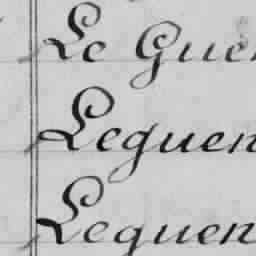 Le Guer
Leguen
Leguen